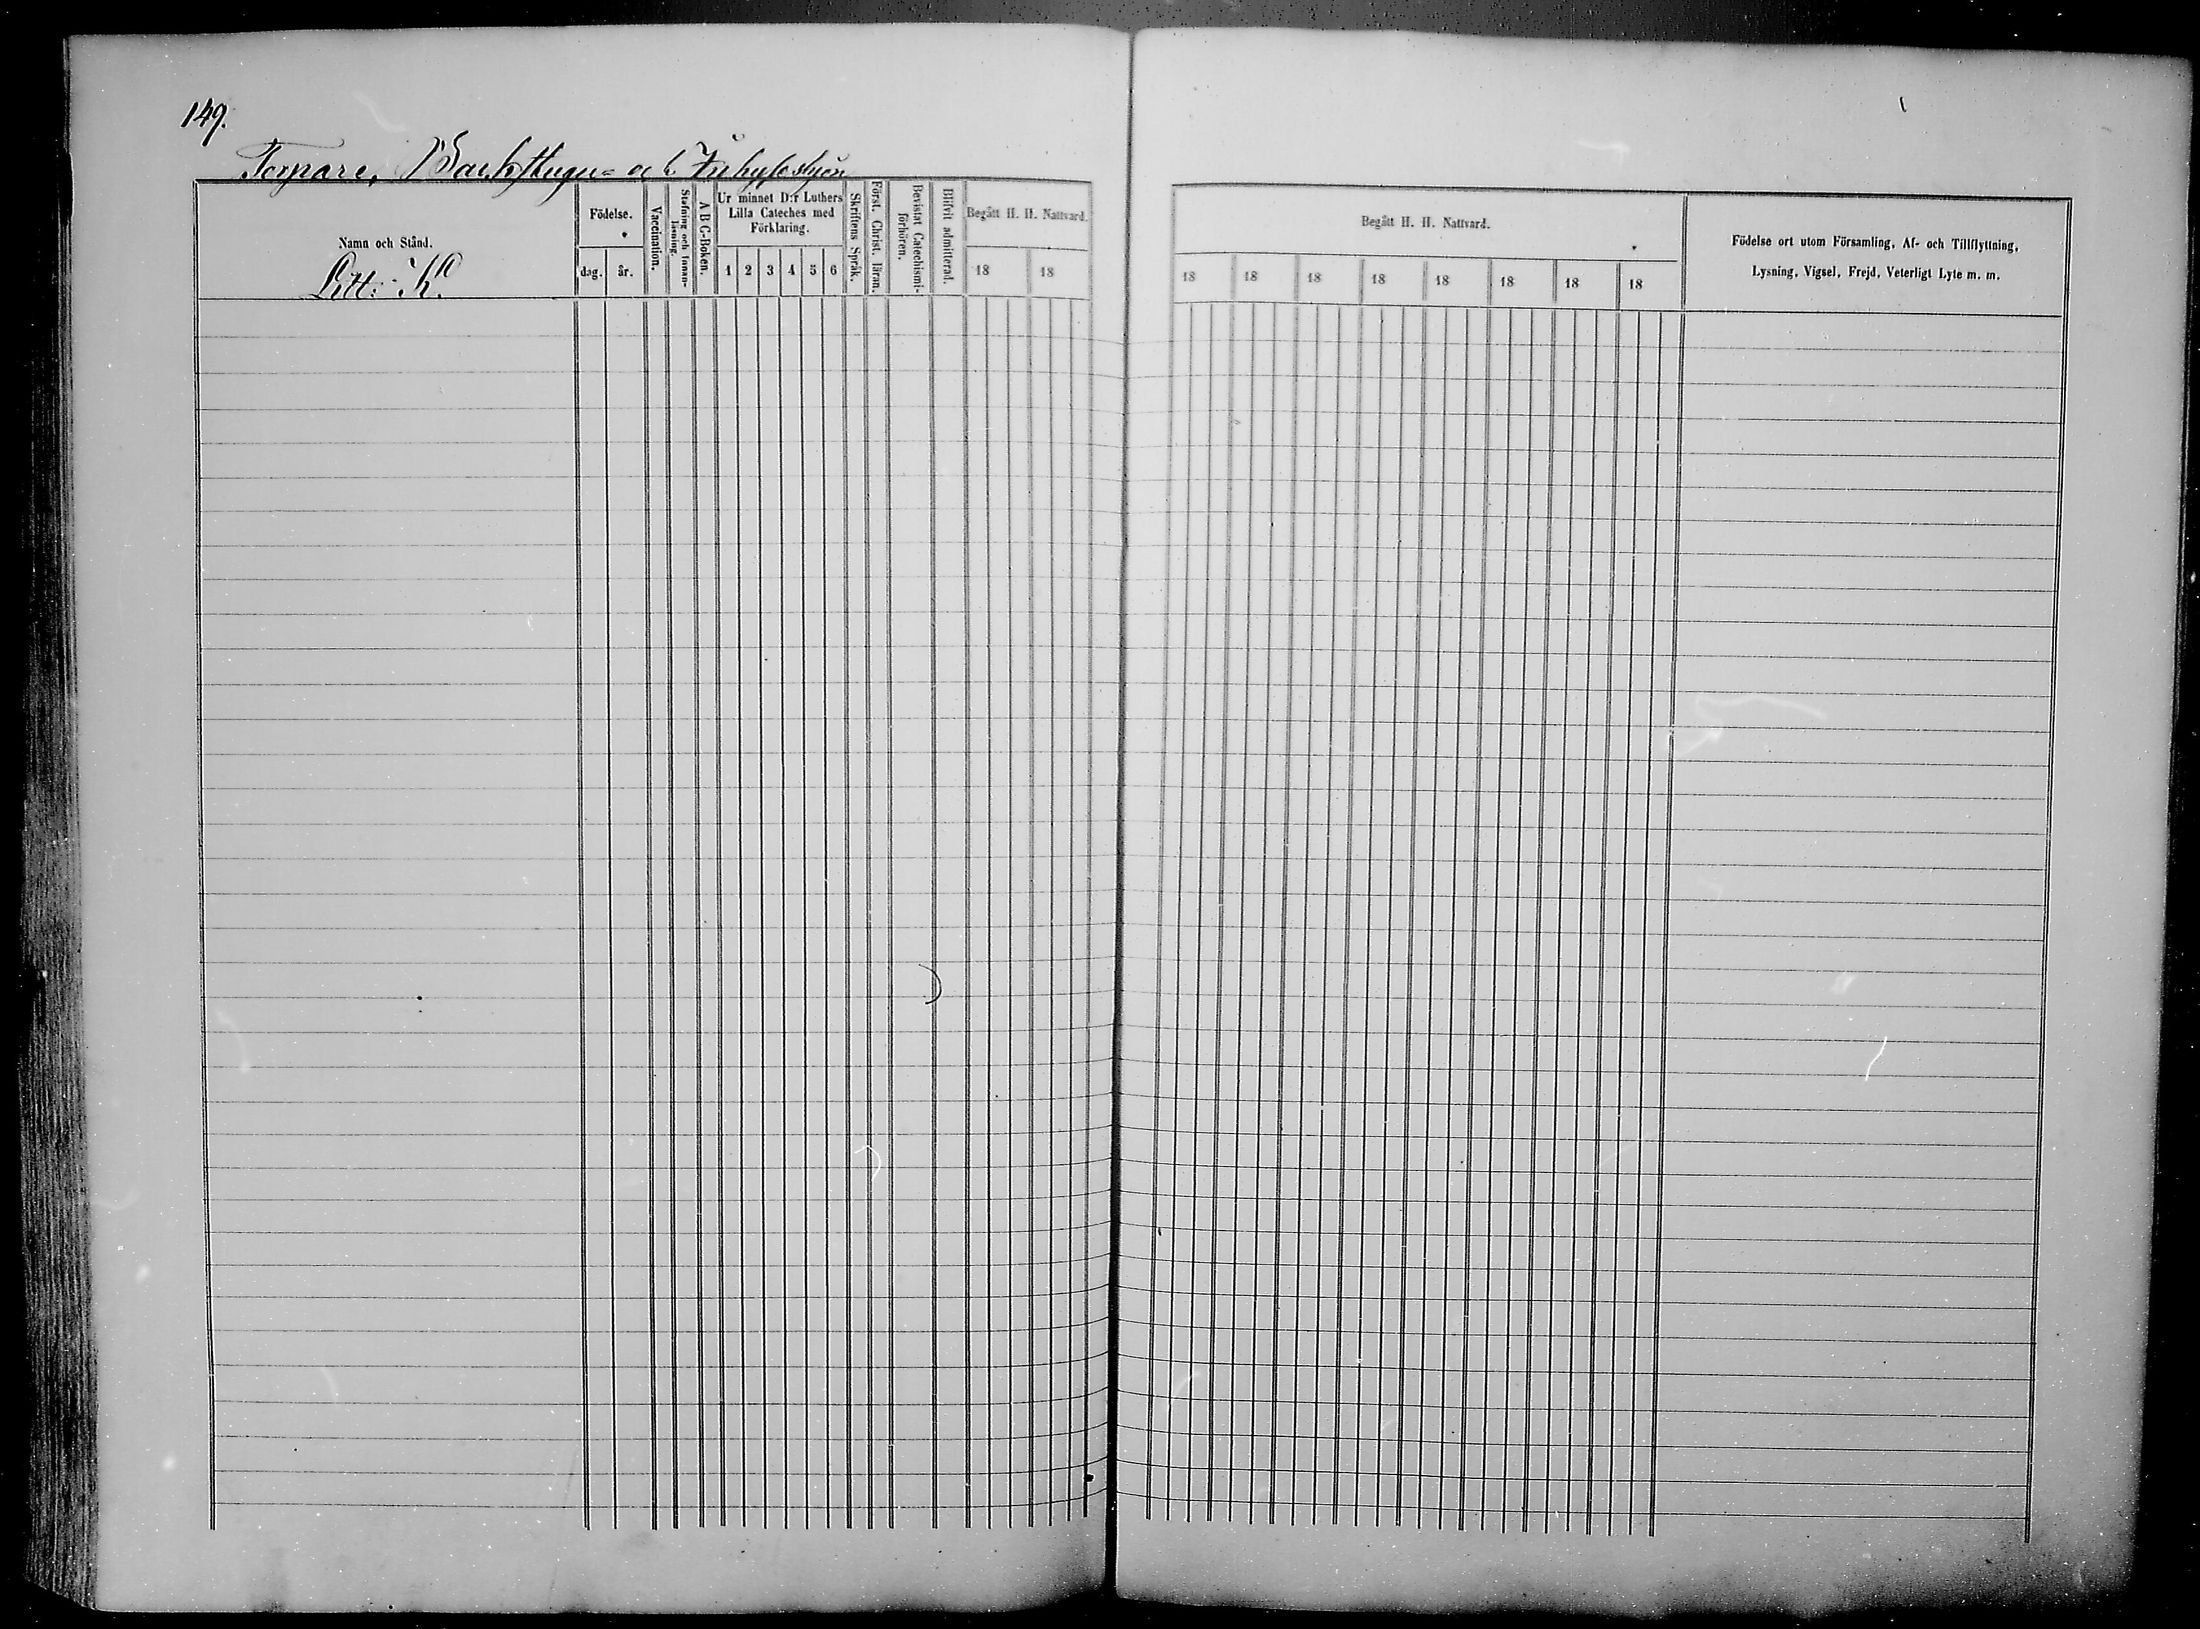 149.
Torpare, Backstugu- och Inhyseshjon
Namn och Stånd.
Litt: K.
Födelse.
dag. år.
Vaccination.
Stafning och Innan-
läsning.
A B C-Boken.
Ur minnet D:r Luthers
Lilla Cateches med
Förklaring.
1 2 3 4 5 6
Skriftens Språk.
Först. Christ. läran.
Bevistat Catechismi-
förhören.
Blifvit admitterad.
Begått H. H. Nattvard.
18 18
Begått H. H. Nattvard.
18 18 18 18 18 18 18 18
Födelse ort utom Församling, Af- och Tillflyttning,
Lysning, Vigsel, Frejd, Veterligt Lyte m. m.